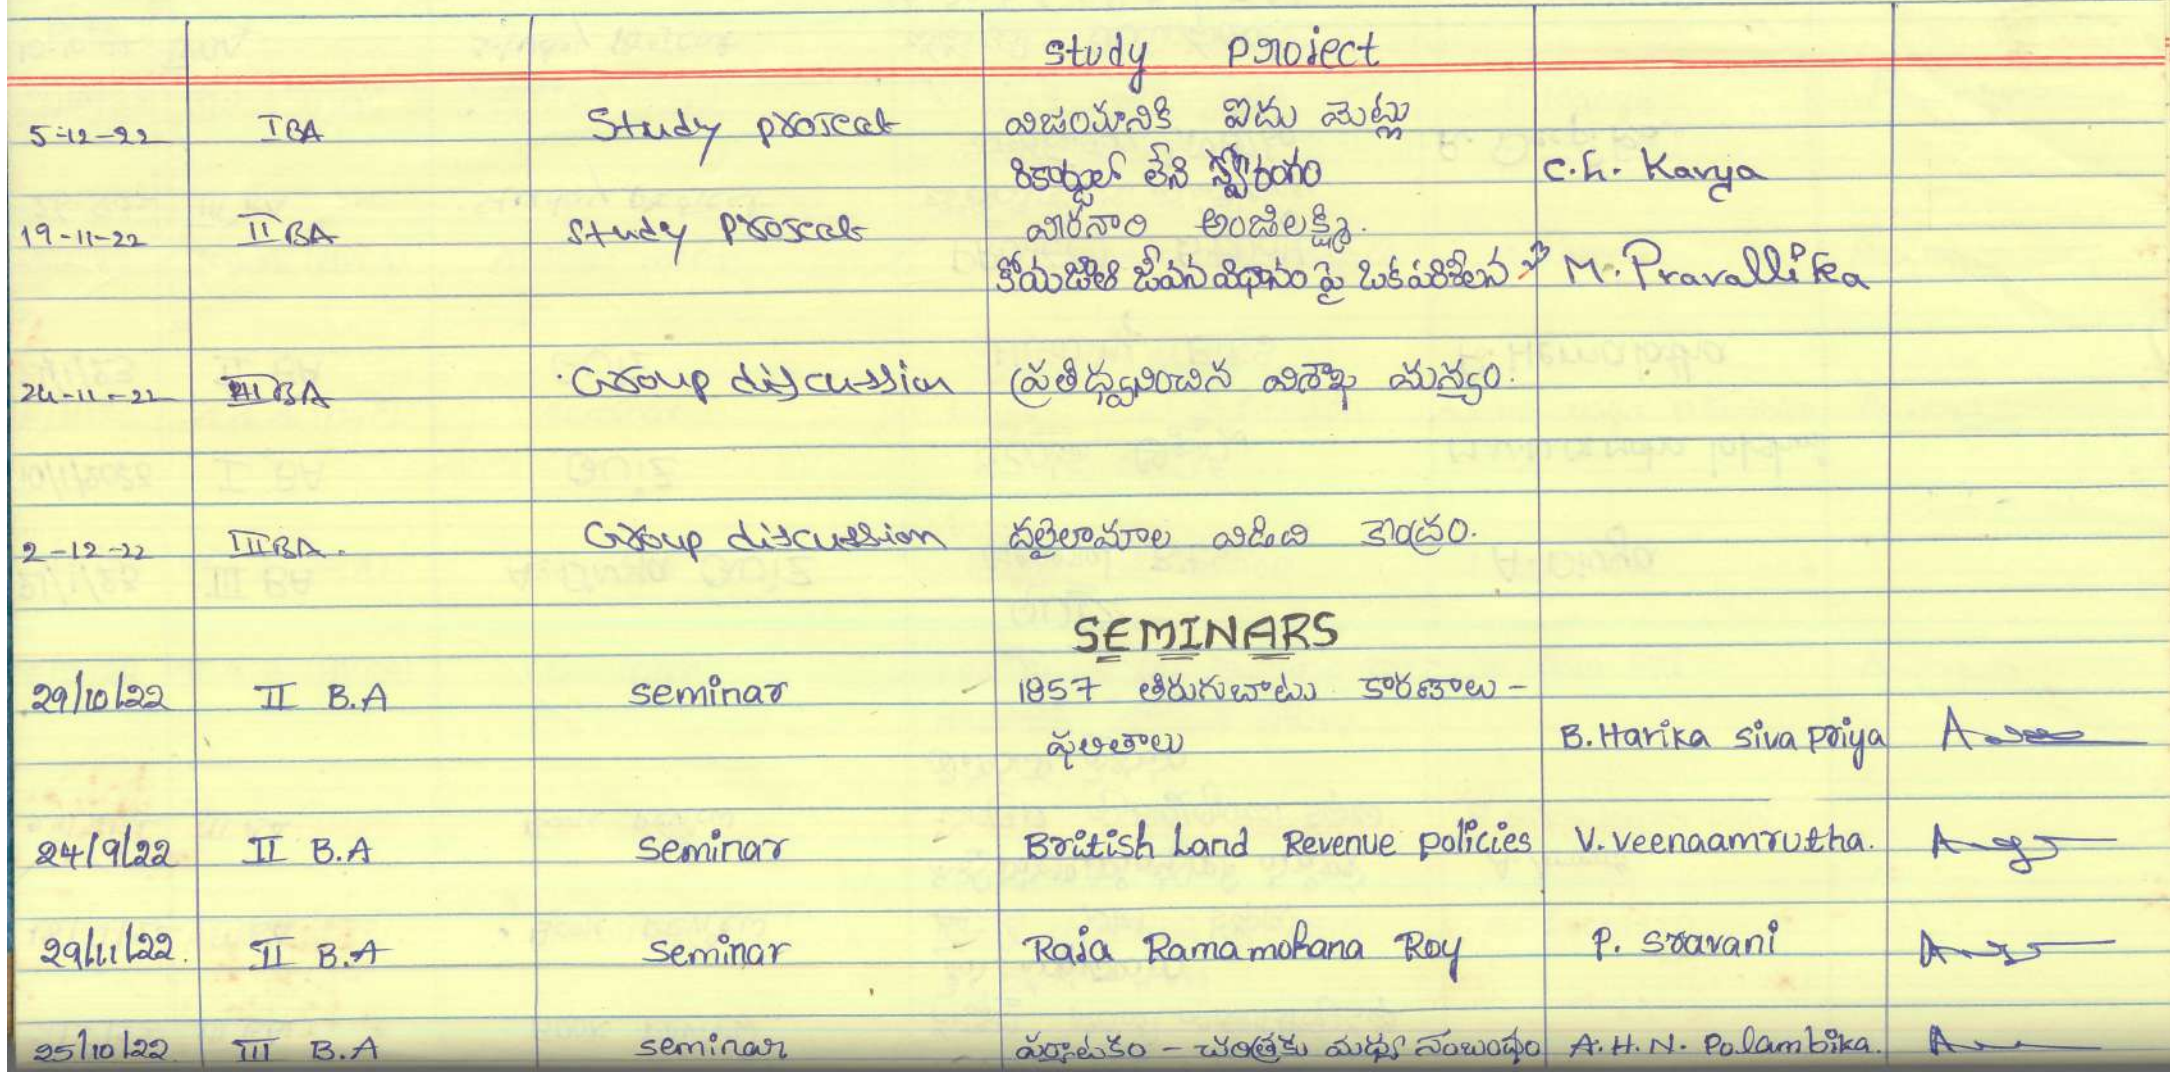 study project
5-12-22 I BA Study project విజయానికి ఐదు మెట్లు
రికార్డుల్ లేని C.h. Kavya
19-11-22 II BA Study project వీరనారి అంజలక్ష్మి.
కోయజాతి జీవన విధానం పై ఒక పరిశీలన M. Pravallika
24-11-22 III BA Group discussion ప్రతిధ్వనించిన విశాఖ మన్యం.
2-12-22 III BA. Group discussion దలైలామాల విడిది కేంద్రం.
SEMINARS
29/10/22 II B.A seminar 1857 తిరుగుబాటు కారణాలు -
ఫలితాలు B. Harika Siva Priya
24/9/22 II B.A Seminar British Land Revenue policies V. Veenaamrutha.
29/11/22. II B.A Seminar Raja Ramamohana Roy P. Sravani
25/10/22 III B.A seminar పర్యాటకం - చరిత్రకు మధ్య సంబంధం A.H.N. Polambika.